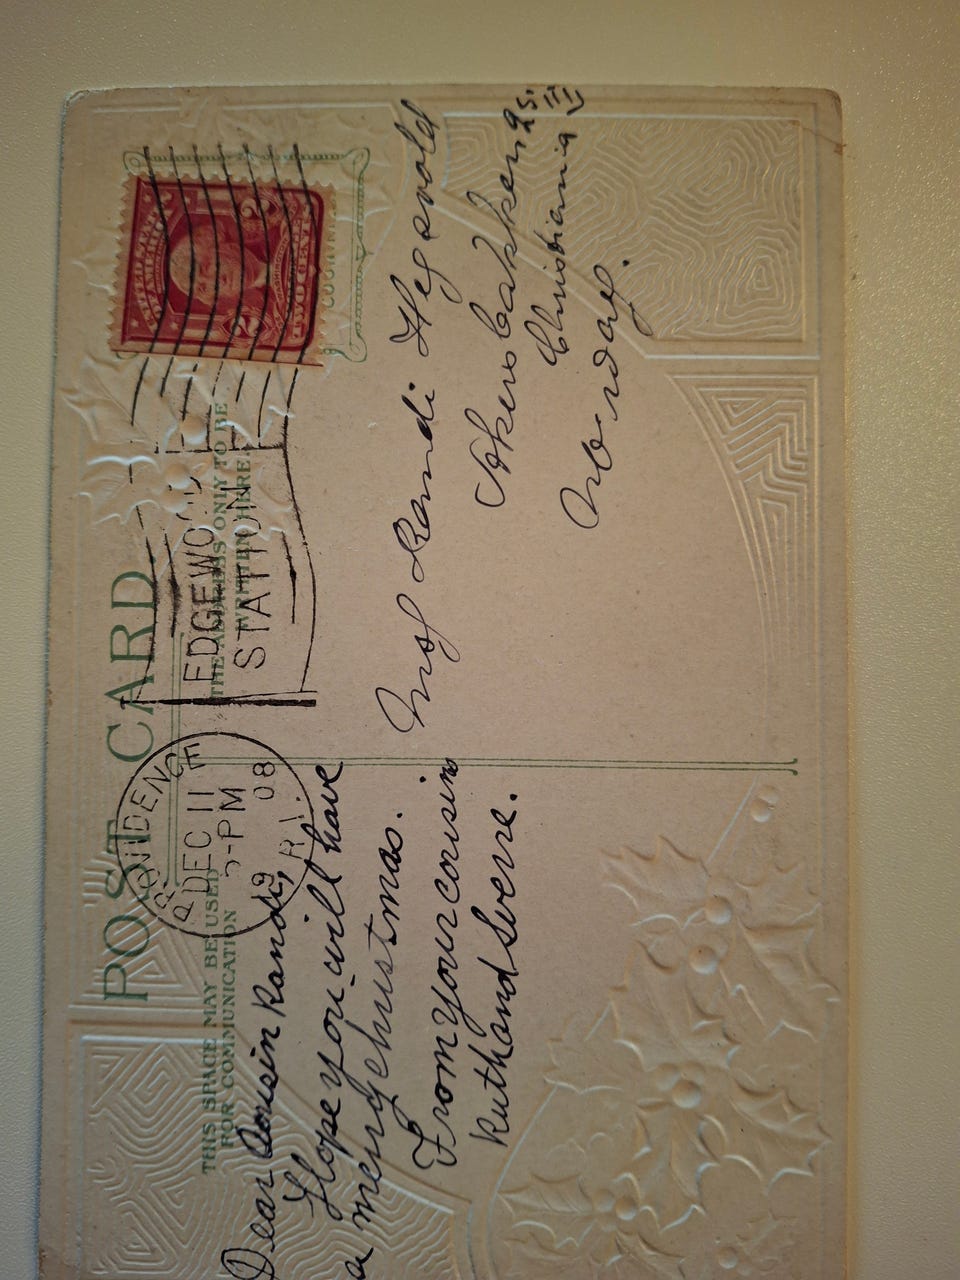 POST CARD
THIS SPACE MAY BE USED
FOR COMMUNICATION
THE ADDRESS ONLY TO BE
WRITTEN HERE.
PROVIDENCE
DEC 11
PM
08
R.I.
EDGEWOOD
STATION
UNITED STATES OF AMERICA
2 2
WASHINGTON
TWO CENTS
Dear Cousin Randi,
I hope you will have
a merry christmas.
From your cousin
Ruth and Sverre.
Randi Hegsvold
Akersbakken 25. III
Christiania V
Norway.